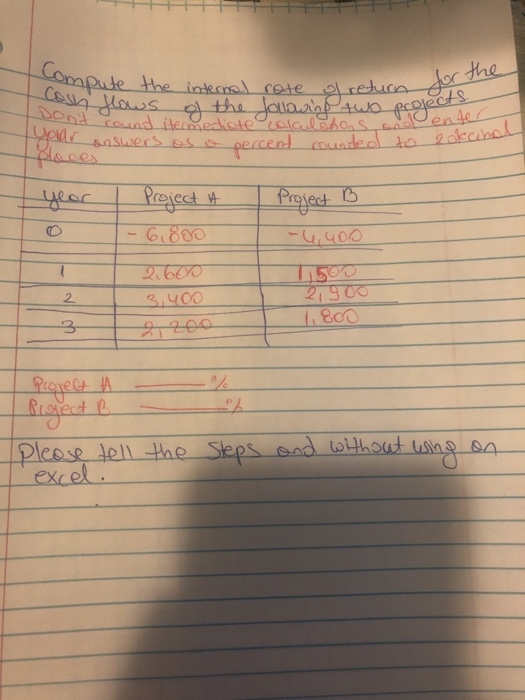 Compute the internal rate of return for the
cash flows of the following two projects
Don't round itermediate calculations, and enter
your answers as a percent rounded to 2 decimal
places
year Project A Project B
0 -6,800 -4,400
1 2,600 1,500
2 3,400 2,900
3 2,200 1,800
Project A ______ %
Project B ______ %
Please tell the steps and without using an
excel.